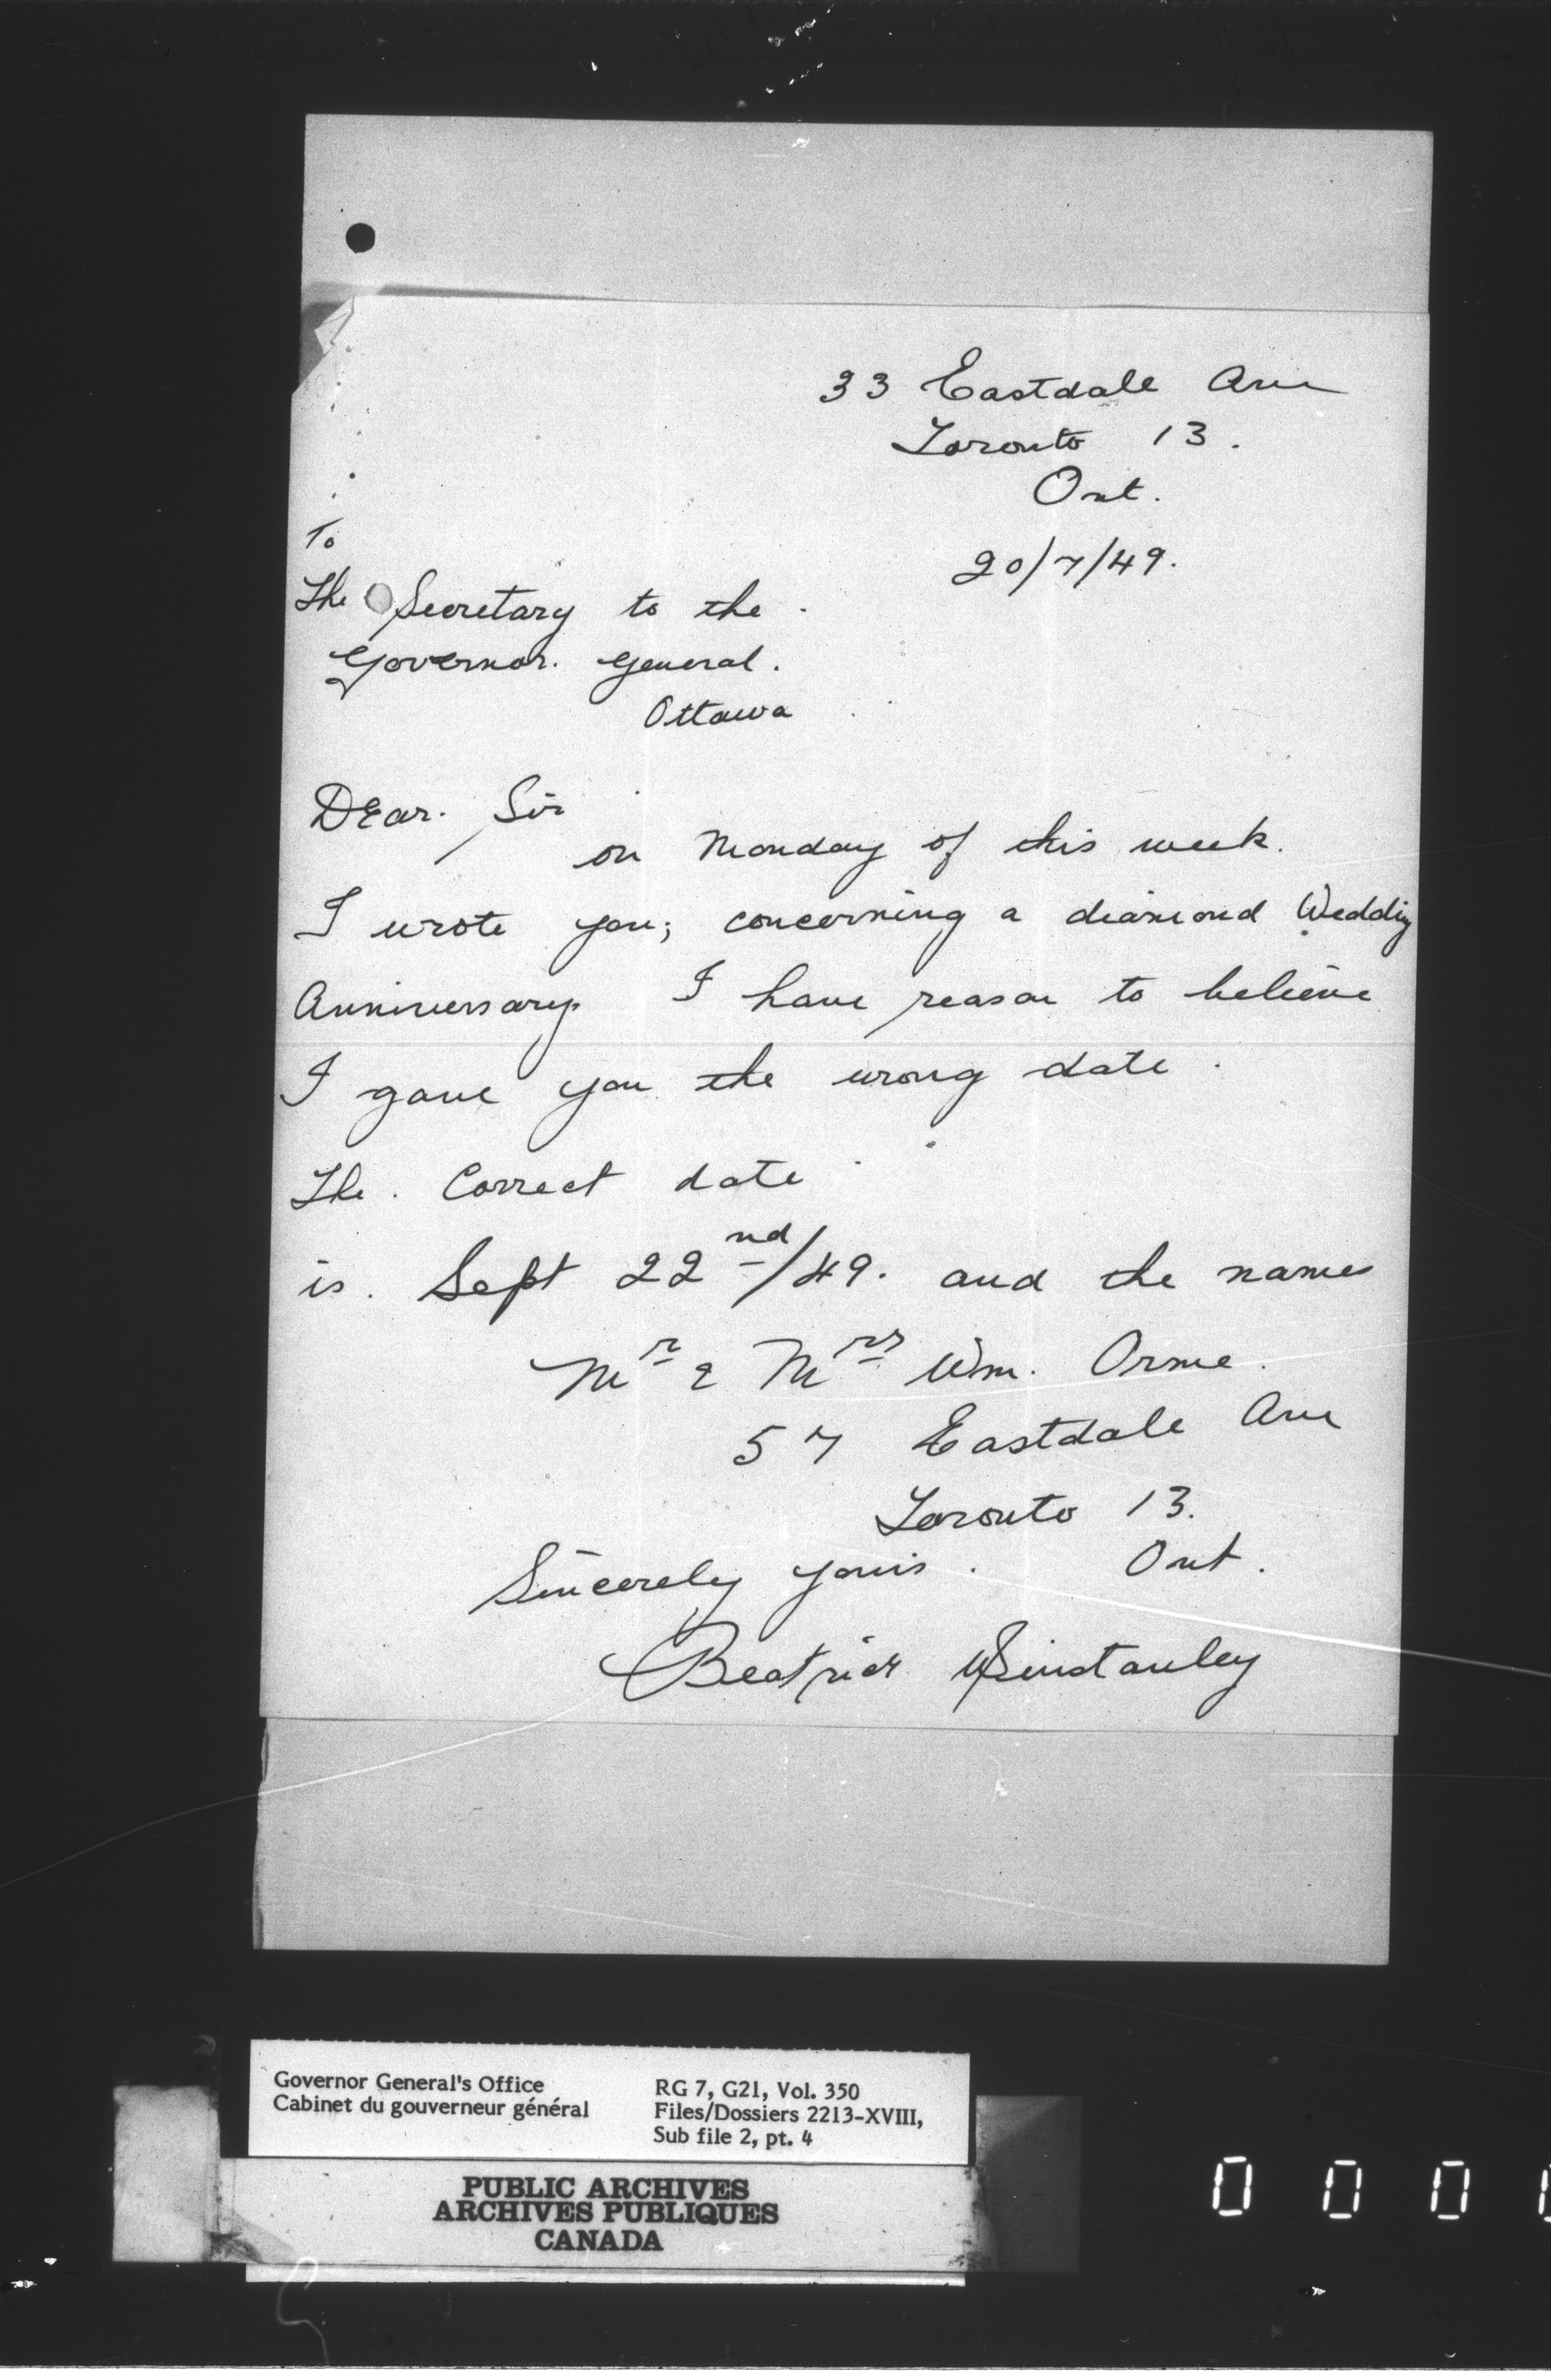 33 Eastdale Ave
Toronto 13.
Ont.
20/7/49.
To
The Secretary to the
Governor. General.
Ottawa
Dear. Sir
on Monday of this week.
I wrote you; concerning a diamond Wedding
Anniversary I have reason to believe
I gave you the wrong date.
The. Correct date
is. Sept 22nd/49. and the names
Mr & Mrs Wm. Orme.
57 Eastdale Ave
Toronto 13.
Sincerely yours. Ont.
Beatrice Winstanley
Governor General's Office
Cabinet du gouverneur général
RG 7, G21, Vol. 350
Files/Dossiers 2213-XVIII,
Sub file 2, pt. 4
PUBLIC ARCHIVES
ARCHIVES PUBLIQUES
CANADA
0 0 0